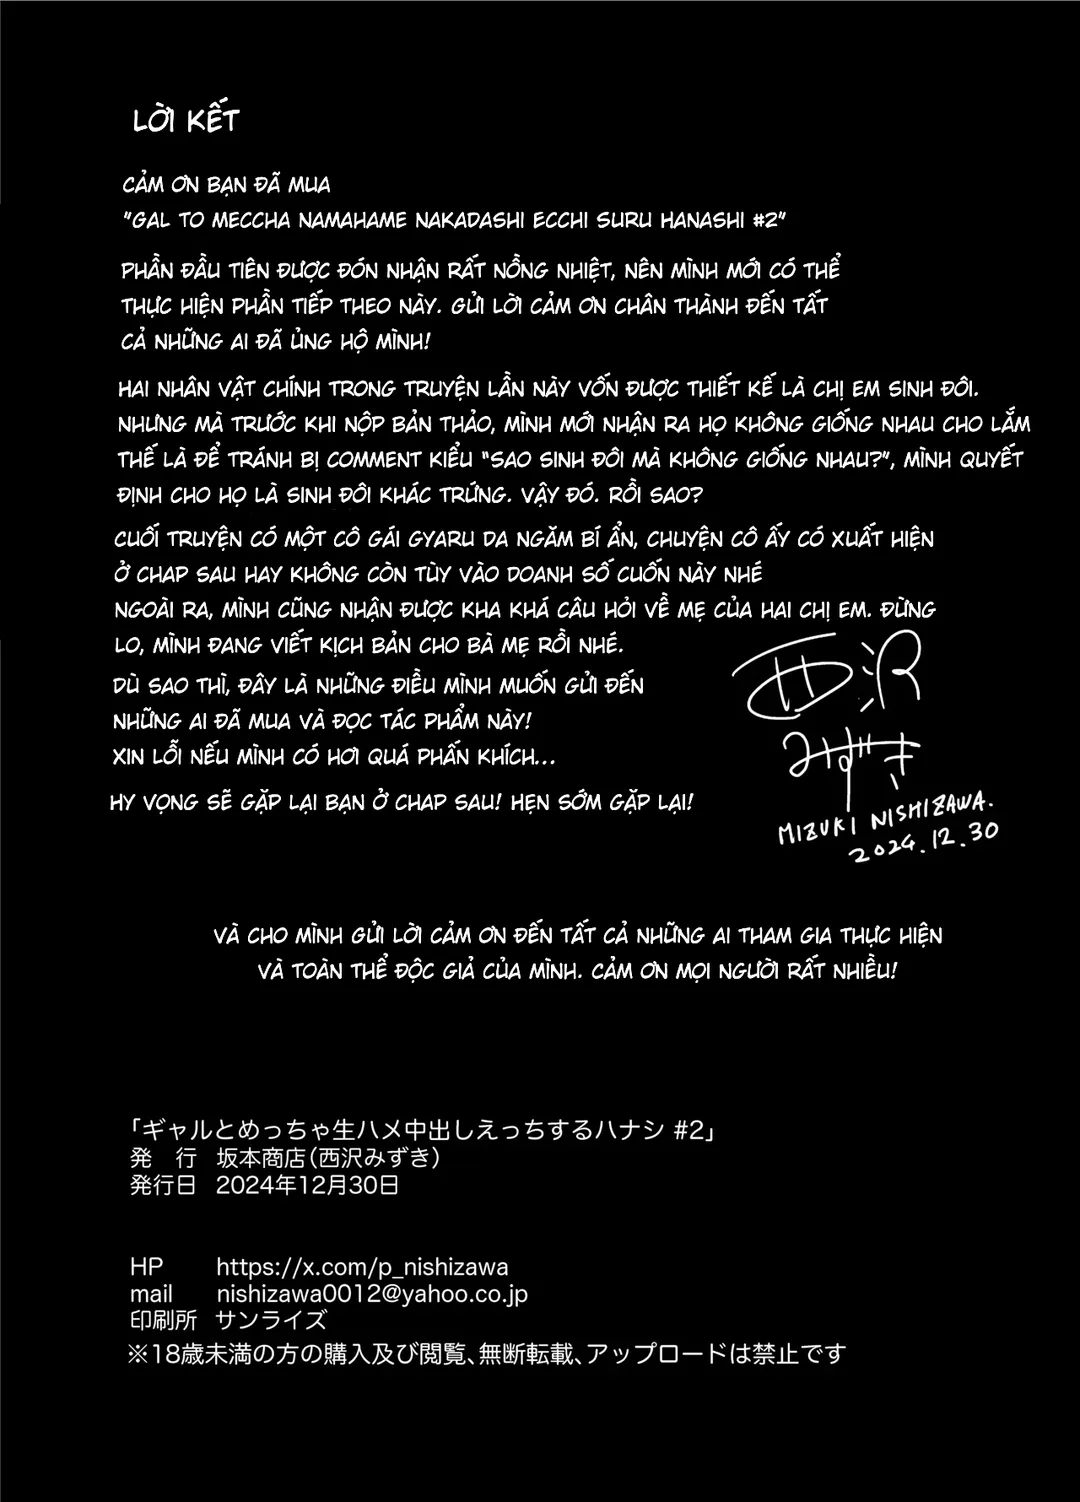 LỜI KẾT
CẢM ƠN BẠN ĐÃ MUA
"GAL TO MECCHA NAMAHAME NAKADASHI ECCHI SURU HANASHI #2"
PHẦN ĐẦU TIÊN ĐƯỢC ĐÓN NHẬN RẤT NỒNG NHIỆT, NÊN MÌNH MỚI CÓ THỂ
THỰC HIỆN PHẦN TIẾP THEO NÀY. GỬI LỜI CẢM ƠN CHÂN THÀNH ĐẾN TẤT
CẢ NHỮNG AI ĐÃ ỦNG HỘ MÌNH!
HAI NHÂN VẬT CHÍNH TRONG TRUYỆN LẦN NÀY VỐN ĐƯỢC THIẾT KẾ LÀ CHỊ EM SINH ĐÔI.
NHƯNG MÀ TRƯỚC KHI NỘP BẢN THẢO, MÌNH MỚI NHẬN RA HỌ KHÔNG GIỐNG NHAU CHO LẮM
THẾ LÀ ĐỂ TRÁNH BỊ COMMENT KIỂU "SAO SINH ĐÔI MÀ KHÔNG GIỐNG NHAU?", MÌNH QUYẾT
ĐỊNH CHO HỌ LÀ SINH ĐÔI KHÁC TRỨNG. VẬY ĐÓ. RỒI SAO?
CUỐI TRUYỆN CÓ MỘT CÔ GÁI GYARU DA NGĂM BÍ ẨN, CHUYỆN CÔ ẤY CÓ XUẤT HIỆN
Ở CHAP SAU HAY KHÔNG CÒN TÙY VÀO DOANH SỐ CUỐN NÀY NHÉ
NGOÀI RA, MÌNH CŨNG NHẬN ĐƯỢC KHA KHÁ CÂU HỎI VỀ MẸ CỦA HAI CHỊ EM. ĐỪNG
LO, MÌNH ĐANG VIẾT KỊCH BẢN CHO BÀ MẸ RỒI NHÉ.
DÙ SAO THÌ, ĐÂY LÀ NHỮNG ĐIỀU MÌNH MUỐN GỬI ĐẾN
NHỮNG AI ĐÃ MUA VÀ ĐỌC TÁC PHẨM NÀY!
XIN LỖI NẾU MÌNH CÓ HƠI QUÁ PHẤN KHÍCH...
HY VỌNG SẼ GẶP LẠI BẠN Ở CHAP SAU! HẸN SỚM GẶP LẠI!
西沢
みずき
MIZUKI NISHIZAWA.
2024.12.30
VÀ CHO MÌNH GỬI LỜI CẢM ƠN ĐẾN TẤT CẢ NHỮNG AI THAM GIA THỰC HIỆN
VÀ TOÀN THỂ ĐỘC GIẢ CỦA MÌNH. CẢM ƠN MỌI NGƯỜI RẤT NHIỀU!
「ギャルとめっちゃ生ハメ中出しえっちするハナシ #2」
発 行 坂本商店(西沢みずき)
発行日 2024年12月30日
HP https://x.com/p_nishizawa
mail nishizawa0012@yahoo.co.jp
印刷所 サンライズ
※18歳未満の方の購入及び閲覧、無断転載、アップロードは禁止です